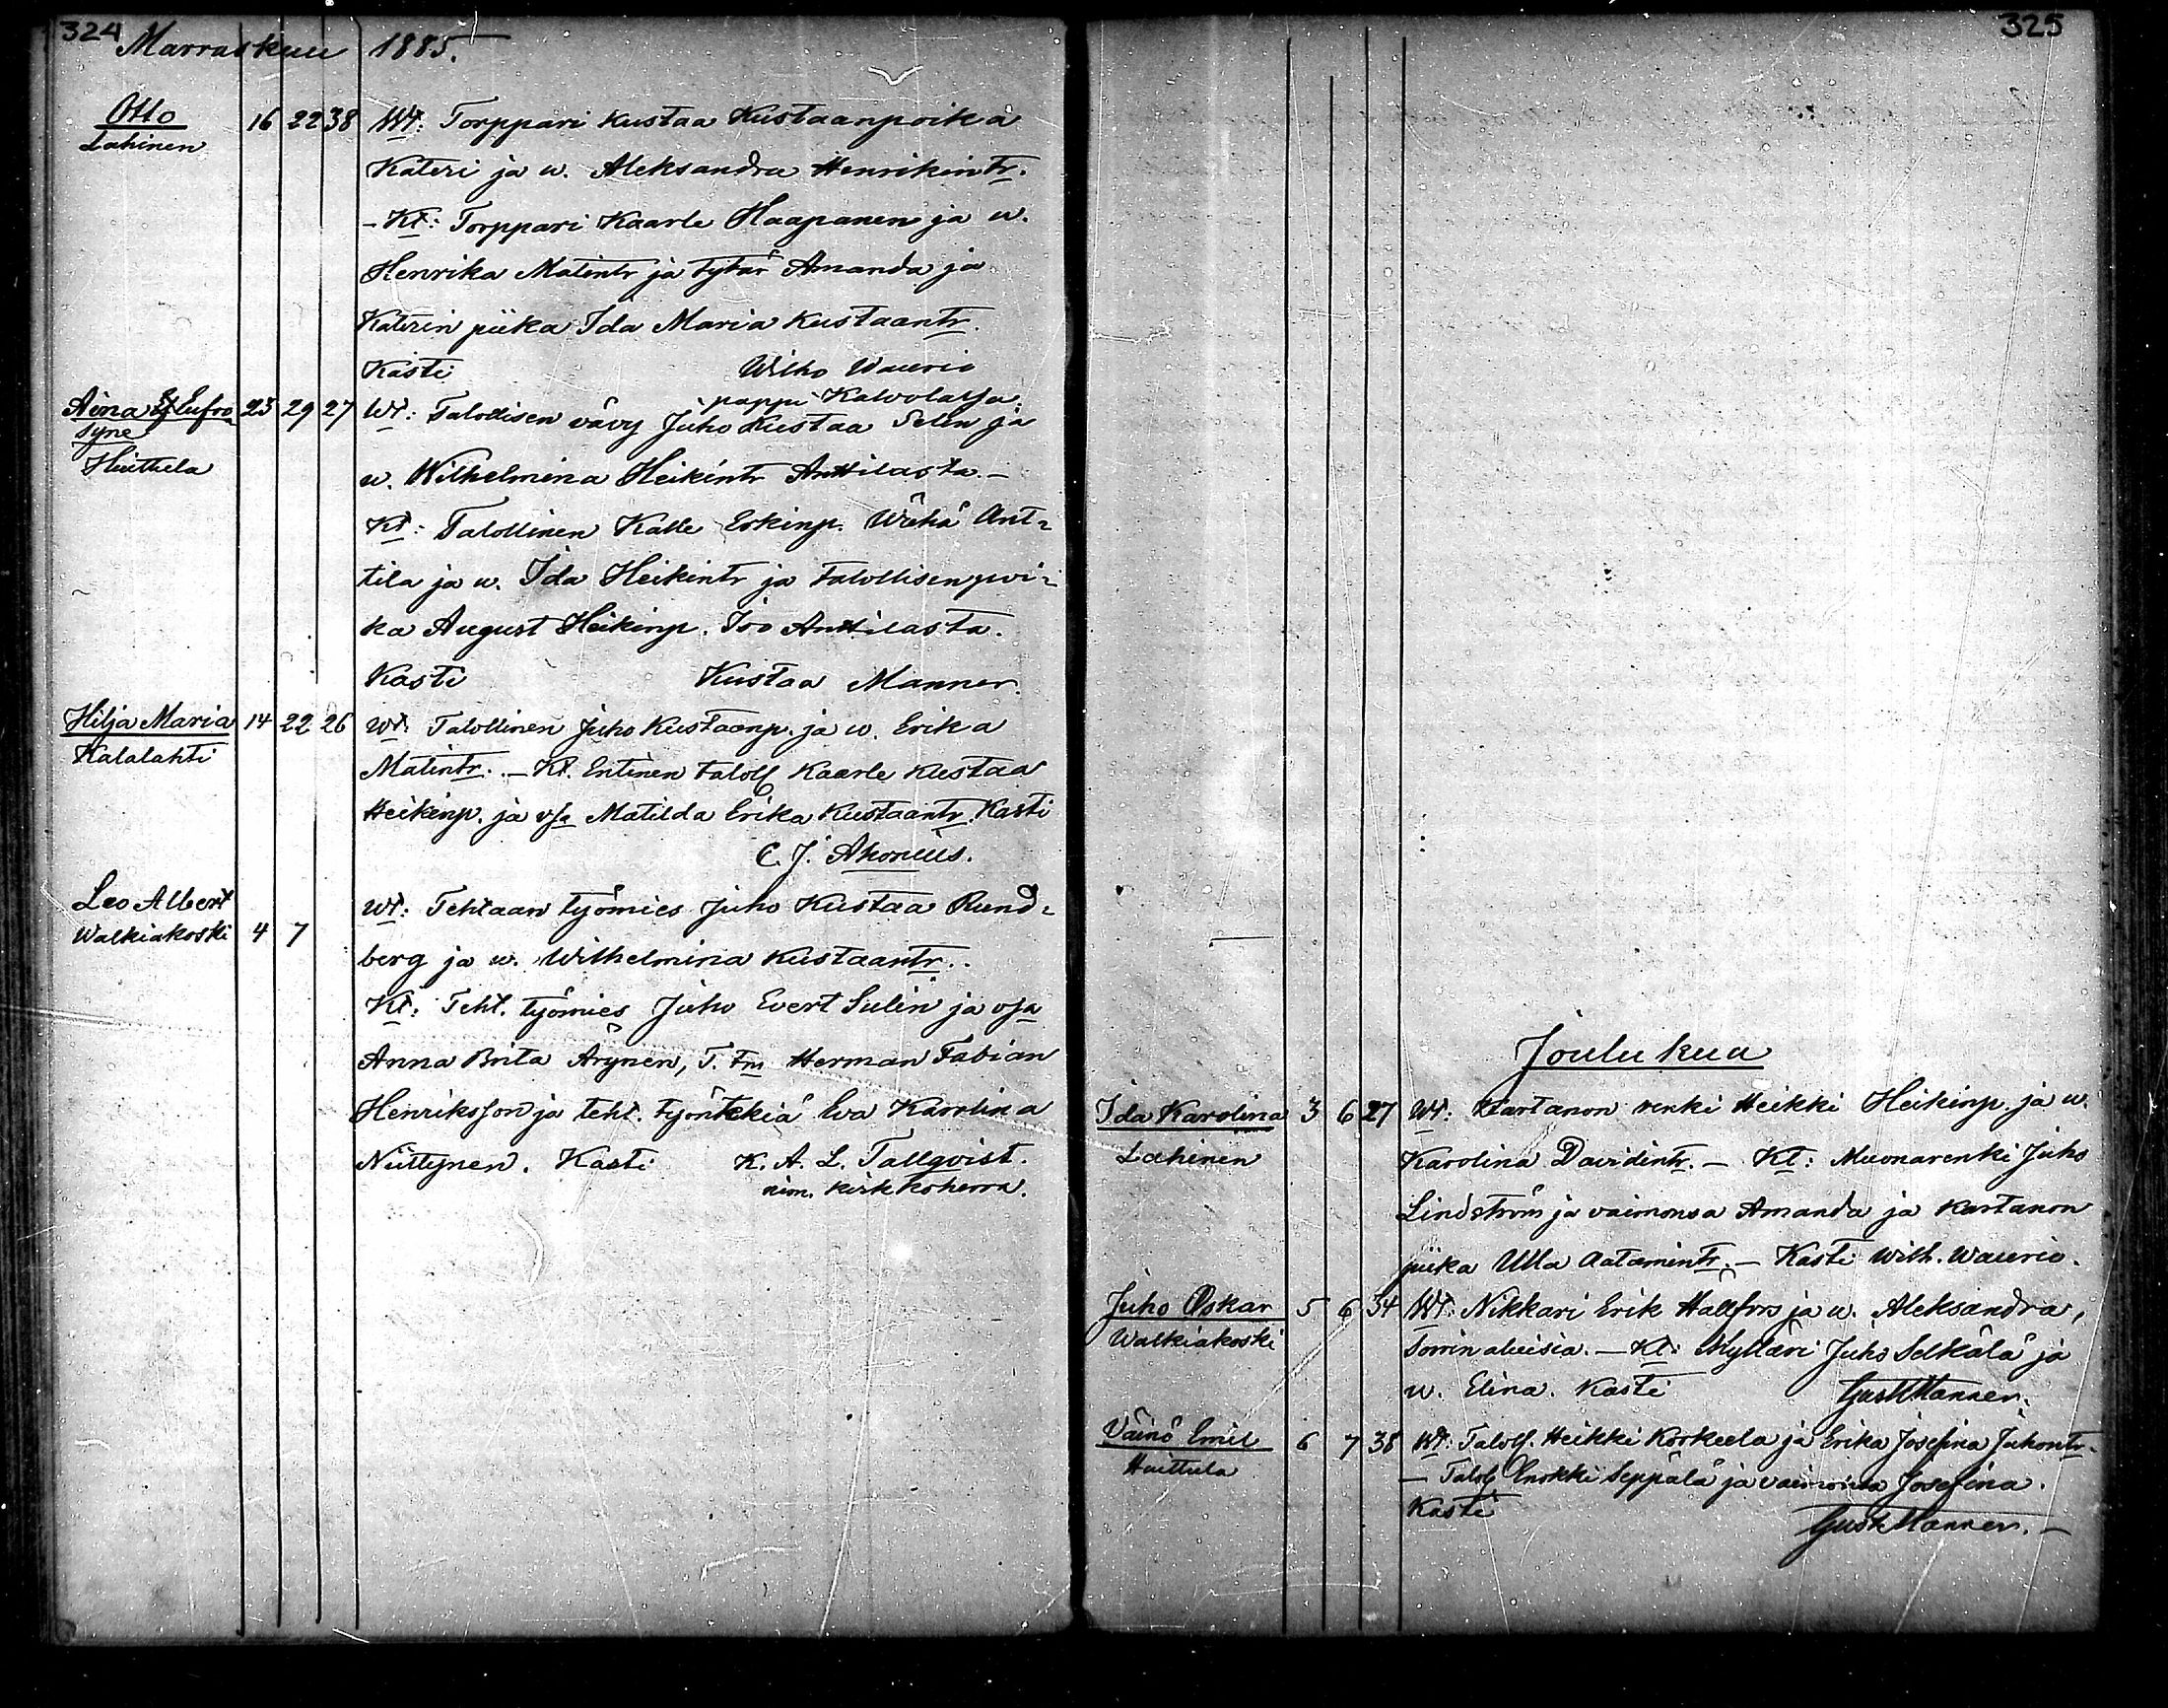 324
Marraskuu 1885.
Otto 16 22 38 Wt: Torppari Kustaa Kustaanpoika
Lahinen
Kateri ja w. Aleksandra Henrikintr.
- Kt: Torppari Kaarle Haapanen ja w.
Henrika Matintr ja tytär Amanda ja
Katerin piika Ida Maria Kustaantr.
Kasti Wilho Waurio
pappi Kalvolassa.
Aina Eufro- 23 29 27 Wt: Talollisen vävy Juho Kustaa Selin ja
syne
Huittula
w. Wilhelmina Heikintr Anttilasta. -
Kt: Talollinen Kalle Erkinp. Wähä Ant=
tila ja w. Ida Heikintr ja talollisen poi=
ka August Heikinp. Iso Anttilasta.
Kasti Kustaa Manner.
Hilja Maria 14 22 26 Wt. Talollinen Juho Kustaanp. ja w. Erika
Kalalahti
Matintr. - Kt. Entinen taloll Kaarle Kustaa
Heikinp. ja vsa Matilda Erika Kustaantr. Kasti
C. J. Ahonius.
Leo Albert
Walkiakoski 4 7
Wt: Tehtaan työmies Juho Kustaa Rund=
berg ja w. Wilhelmina Kustaantr.
Kt: Teht. työmies Juho Evert Sulin ja vsa
Anna Brita Arynen, T. tm Herman Fabian
Henriksson ja teht. työntekiä Eva Karolina
Niittynen. Kasti K. A. L. Tallqvist.
nim. kirkkoherra.
325
Joulukuu
Ida Karolina 3 6 27 Wt: Kartanon renki Heikki Heikinp. ja w.
Lahinen
Karolina Davidintr. - Kt: Muonarenki Juho
Lindström ja vaimonsa Amanda ja Kartanon
piika Ulla Aatamintr. - Kasti Wilh. Waurio.
Juho Oskar 5 6 34 Wt: Nikkari Erik Hallfors ja w. Aleksandra,
Walkiakoski
Kt: Mylläri Juho Selkälä ja
w. Elina. Kasti Gust Manner.
Väinö Emil 6 7 38 Wt: Taloll. Heikki Korkeela ja Erika Josefina Juhontr.
Huittula
- Taloll Enokki Seppälä ja vaimonsa Josefina.
Kasti
Gust Manner. -